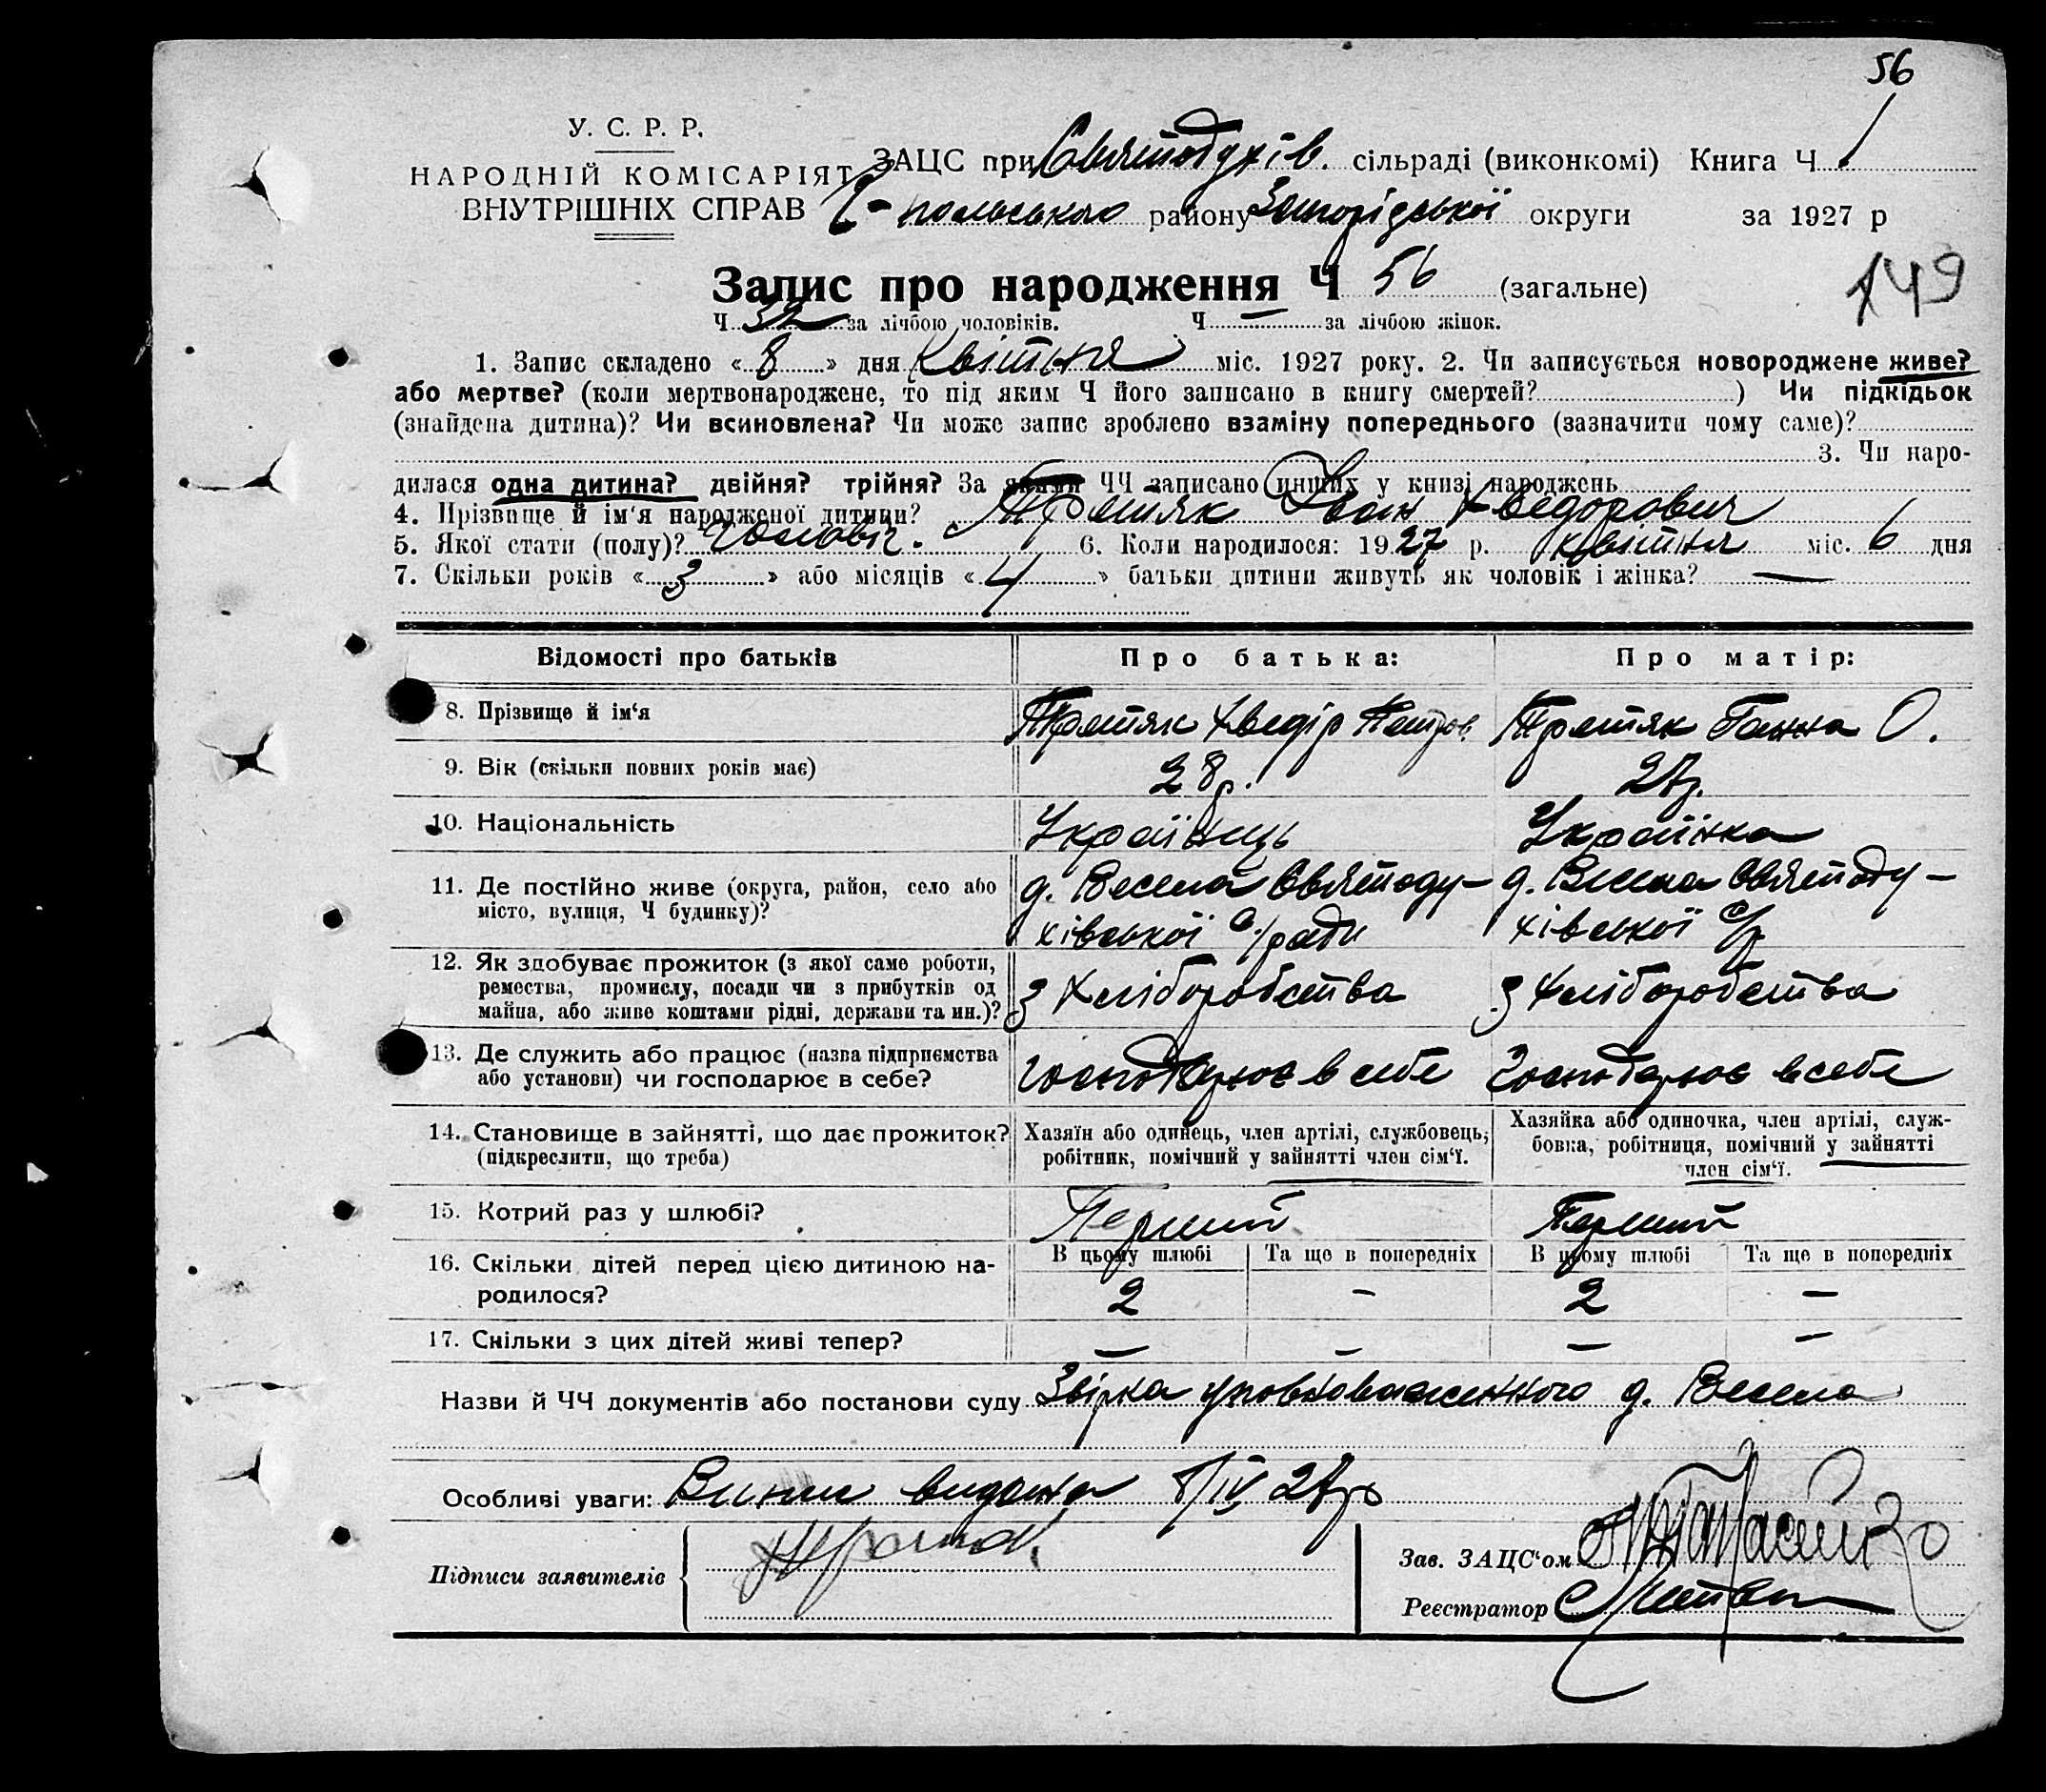 56
У. С. Р. Р.
НАРОДНІЙ КОМІСАРІЯТ
ВНУТРІШНІХ СПРАВ
ЗАЦС при Святодухів. сільраді (виконкомі) Книга Ч 1
польського району Запорізької округи за 1927 р
Запис про народження Ч 56 (загальне)
149
Ч 32 за лічбою чоловіків. Ч — за лічбою жінок.
1. Запис складено « 8 » дня Квітня міс. 1927 року. 2. Чи записується новороджене живе?
або мертве? (коли мертвонароджене, то під яким Ч його записано в книгу смертей? ) Чи підкідьок
(знайдена дитина)? Чи всиновлена? Чи може запис зроблено взаміну попереднього (зазначити чому саме)?
3. Чи наро-
дилася одна дитина? двійня? трійня? За якими ЧЧ записано инших у книзі народжень
4. Прізвище й ім'я народженої дитини? Третяк Іван Хведорович
5. Якої стати (полу)? чоловіч. 6. Коли народилося: 1927 р. квітня міс. 6 дня
7. Скільки років « 3 » або місяців « 4 » батьки дитини живуть як чоловік і жінка? —
Відомості про батьків Про батька: Про матір:
8. Прізвище й ім'я Третяк Хведір Петров. Третяк Ганна О.
9. Вік (скільки повних років має) 28 р. 27 р.
10. Національність Українець Українка
11. Де постійно живе (округа, район, село або місто, вулиця, Ч будинку)? д. Весела Святоду- д. Весела Святоду-
хівської с/ради хівської с/р
12. Як здобуває прожиток (з якої саме роботи,
ремества, промислу, посади чи з прибутків од
майна, або живе коштами рідні, держави та ин.)? З хліборобства З хліборобства
13. Де служить або працює (назва підприємства
або установи) чи господарює в себе? господарює в себе господарює в себе
14. Становище в зайнятті, що дає прожиток?
(підкреслити, що треба)
Хазяїн або одинець, член артілі, службовець,
робітник, помічний у зайнятті член сім'ї.
Хазяйка або одиночка, член артілі, служ-
бовка, робітниця, помічний у зайнятті
член сім'ї.
15. Котрий раз у шлюбі? Перший Перший
16. Скільки дітей перед цією дитиною на-
родилося?
В цьому шлюбі Та ще в попередніх В цьому шлюбі Та ще в попередніх
2 — 2 —
17. Скільки з цих дітей живі тепер? — — — —
Назви й ЧЧ документів або постанови суду Звірка уповноваженного д. Весела
Особливі уваги: Випис видана 8/IV 27 р
Підписи заявителів Третяк
Зав. ЗАЦС'ом
Реєстратор